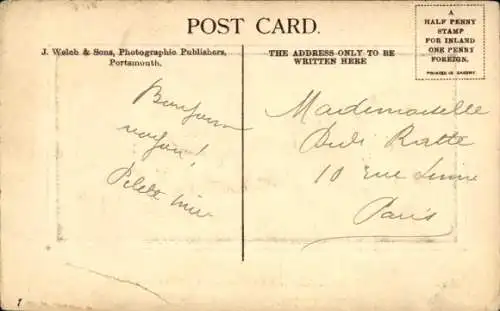 POST CARD.
A
HALF PENNY
STAMP
FOR INLAND
ONE PENNY
FOREIGN.
PRINTED IN SAXONY
J. Welch & Sons, Photographic Publishers,
Portsmouth.
THE ADDRESS ONLY TO BE
WRITTEN HERE
Mademoiselle
Ratte
10 rue
Paris
1